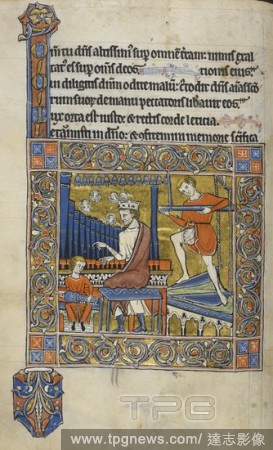 m tu dñs altissim' sup omnem terram: nimis exal
tat' es sup om̄s deos. tionis eius.
ui diligitis dñm odite malū: custodit dñs aīas scō
rum suoꝝ de manu peccatoris lib'abit eos.
ux orta est iusto & rectis corde leticia.
in dño: & ofitemini memorie scīfica
TPG
www.tpgnews.com / 達志影像